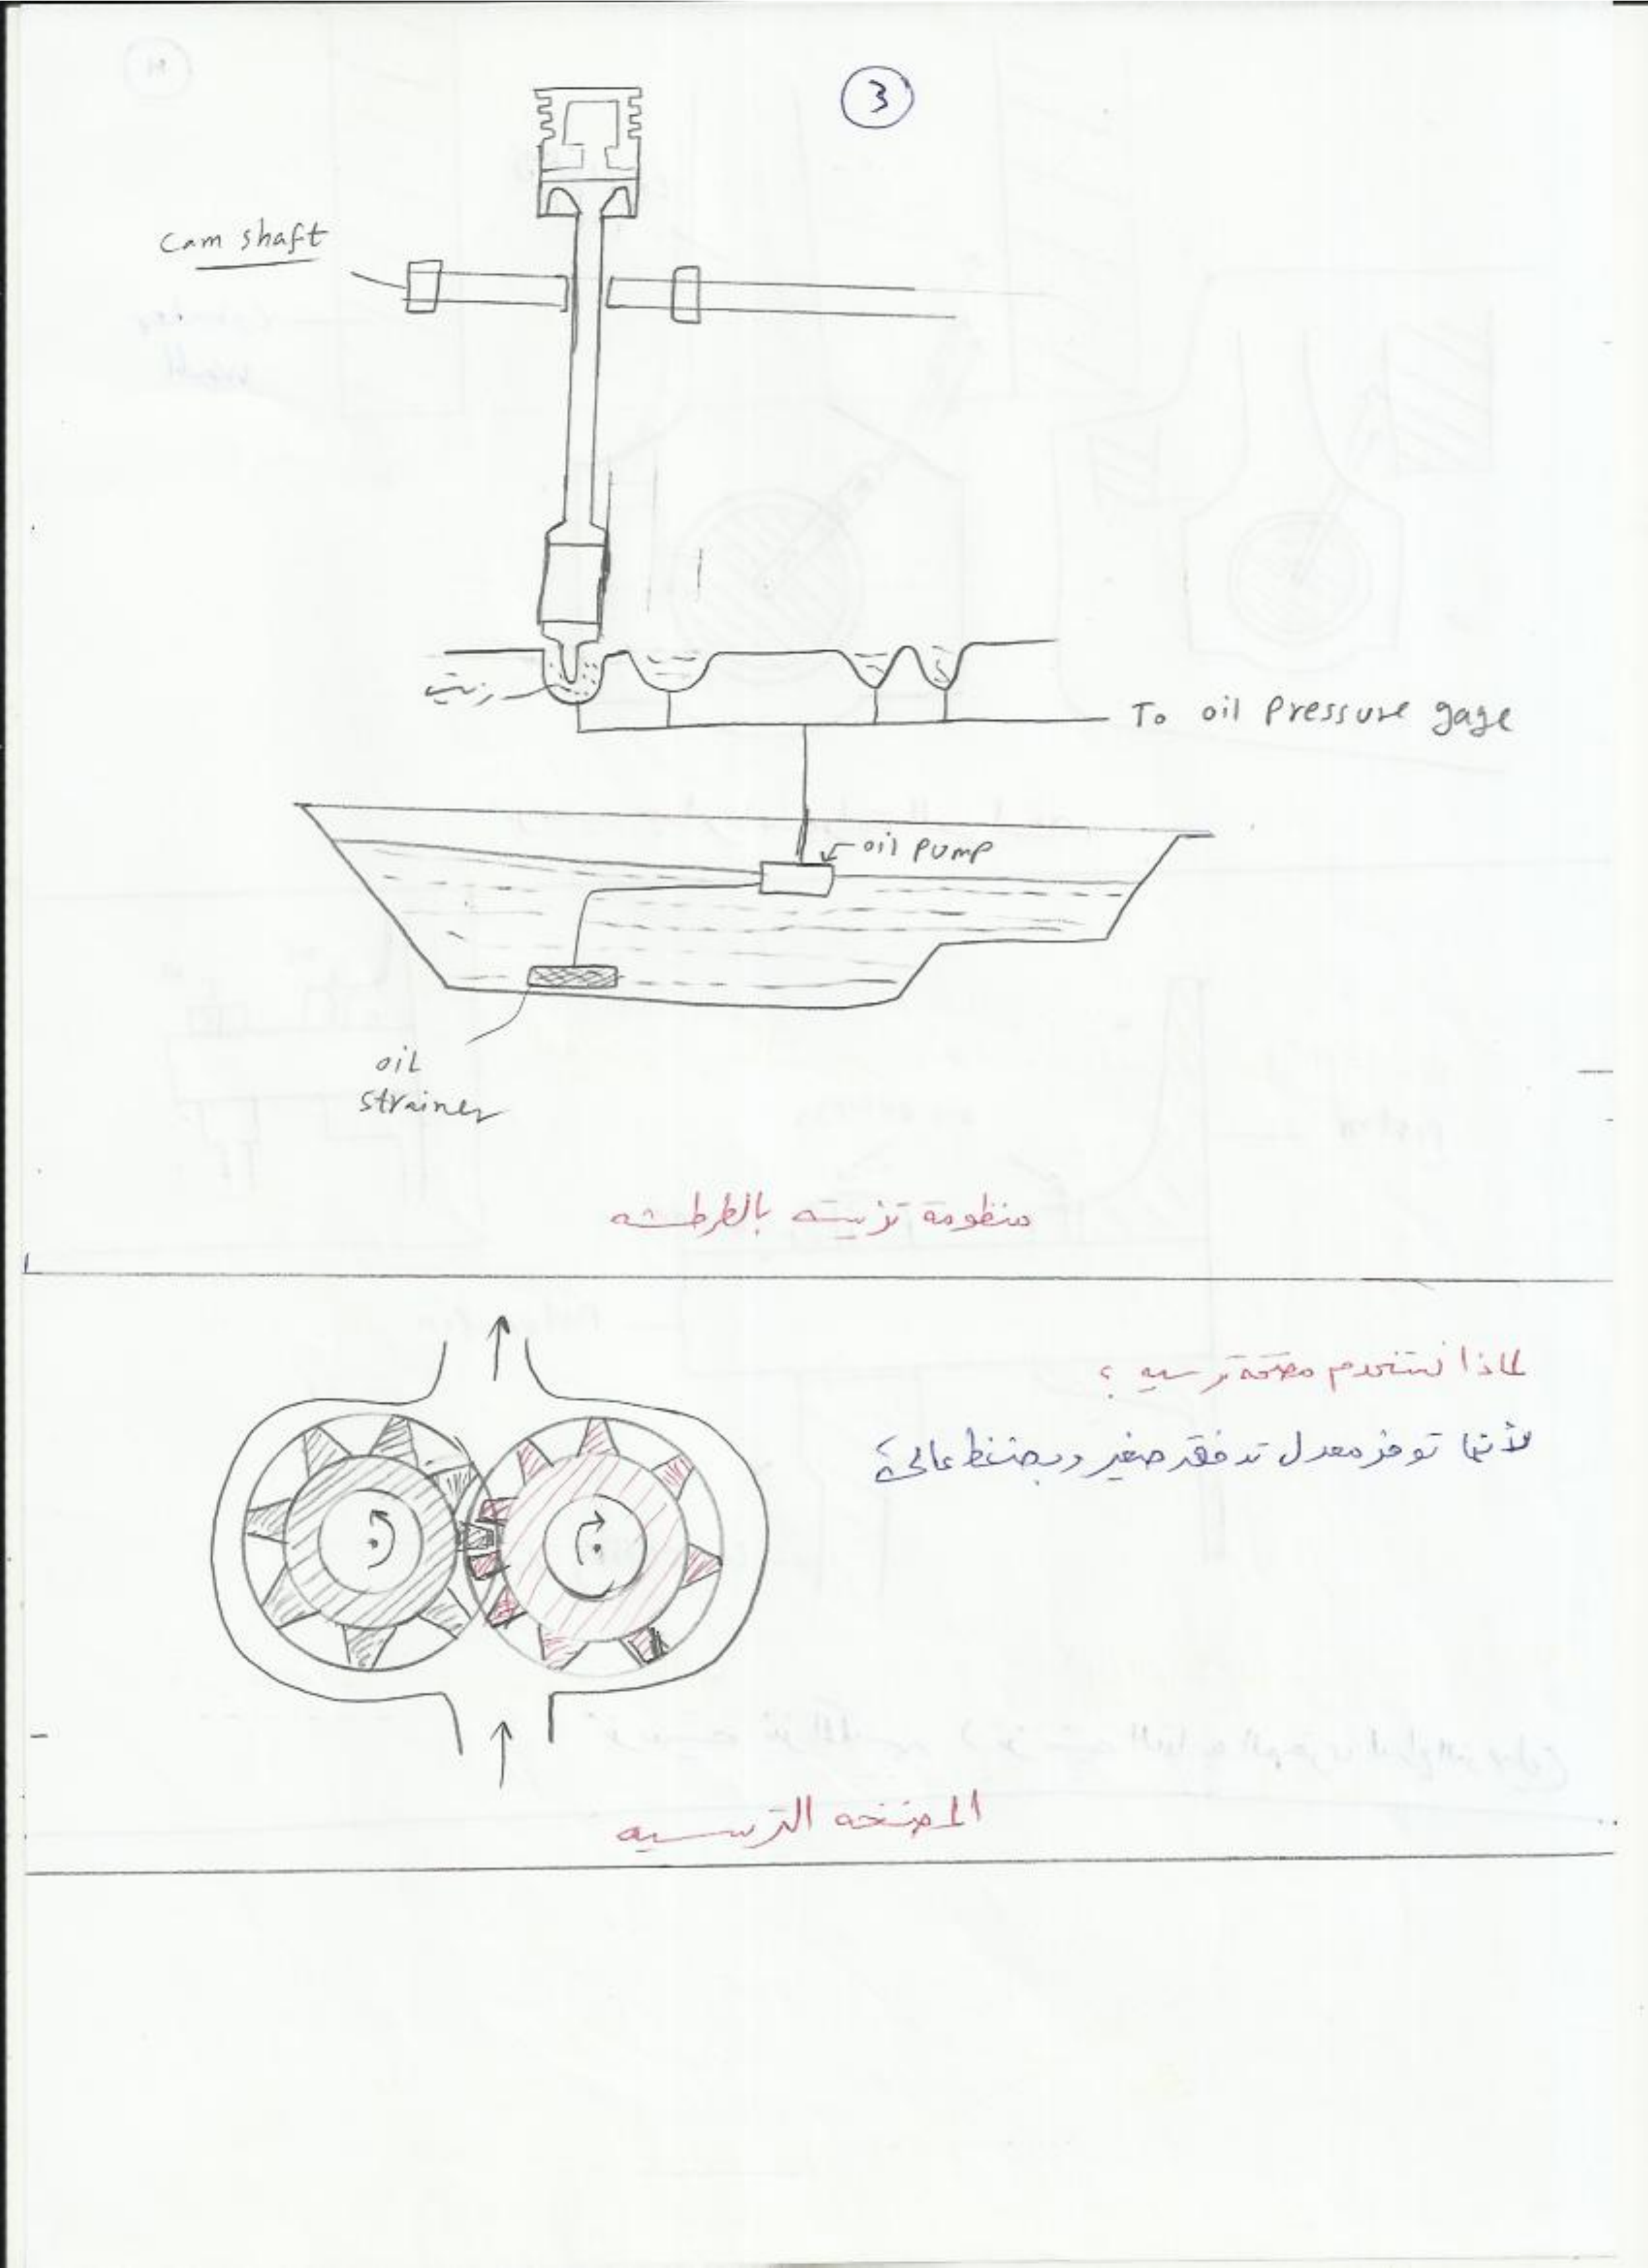 3
cam shaft
زيت
To oil pressure gage
oil pump
oil
strainer
منظومة تزييته بالطرطشه
لماذا نستخدم مضخة ترسيه ؟
لأنها توفر معدل تدفق صغير وبضغط عالي
المضخه الترسيه